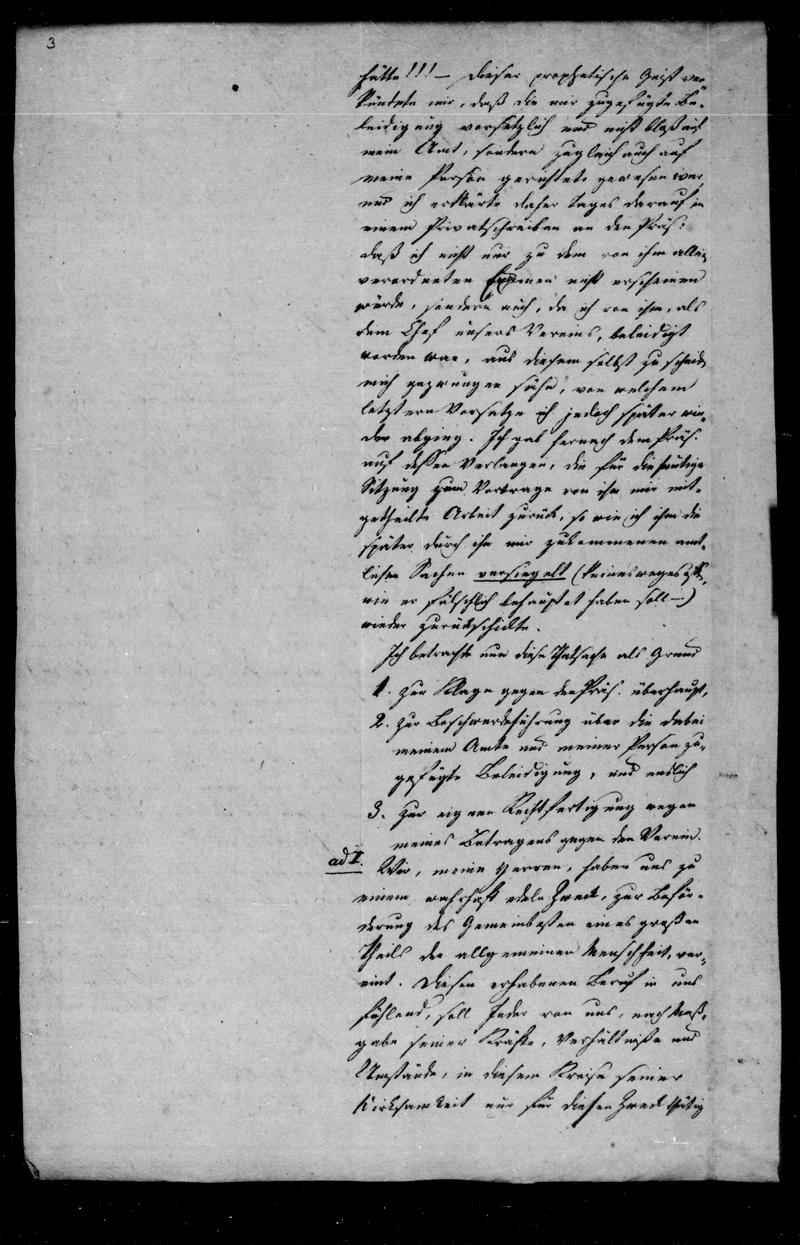 3
hätte!!! — Dieser prophetische Geist ver-
kündete mir, daß die mir zugefügte Be-
leidigung vorsetzlich und nicht bloß auf
mein Amt, sondern zugleich auch auf
meine Person gerichtet gewesen war,
und ich erklärte daher tages darauf in
einem Privatschreiben an den Präs:
daß ich nicht nur zu dem von ihm allein
verordneten Examen nicht erscheinen
würde, sondern auch, da ich von ihm, als
dem Chef unsers Vereins, beleidigt
worden war, aus diesem selbst zu scheiden
mich gezwungen sähe, von welchem
letztern Vorsatze ich jedoch später wie-
der abging. Ich gab hernach dem Präs.
auf dessen Verlangen, die für die heutige
Sitzung zum Vortrage von ihm mir mit-
getheilte Arbeit zurück, so wie ich ihm die
später durch ihn mir zukommenen amt-
lichen Sachen versiegelt (keinesweges
wie er fälschlich behauptet haben soll —)
wieder zurückschickte.
Ich betrachte nun diese Thatsache als Grund
1. zur Klage gegen den Präs. überhaupt,
2. zur Beschwerdeführung über die dabei
meinem Amte und meiner Person zu-
gefügte Beleidigung, und endlich
3. zur eignen Rechtfertigung wegen
meines Betragens gegen den Verein.
ad I. Wir, meine Herren, haben uns zu
einem wahrhaft edeln Zweck, zur Beför-
derung des Gemeinbesten eines großen
Theils der allgemeinen Menschheit, ver-
eint. Diesen erhabenen Beruf in uns
fühlend, soll Jeder von uns, nach Maß-
gabe seiner Kräfte, Verhältnisse und
Umstände, in diesem Kreise seiner
Wirksamkeit nur für diesen Zweck thätig